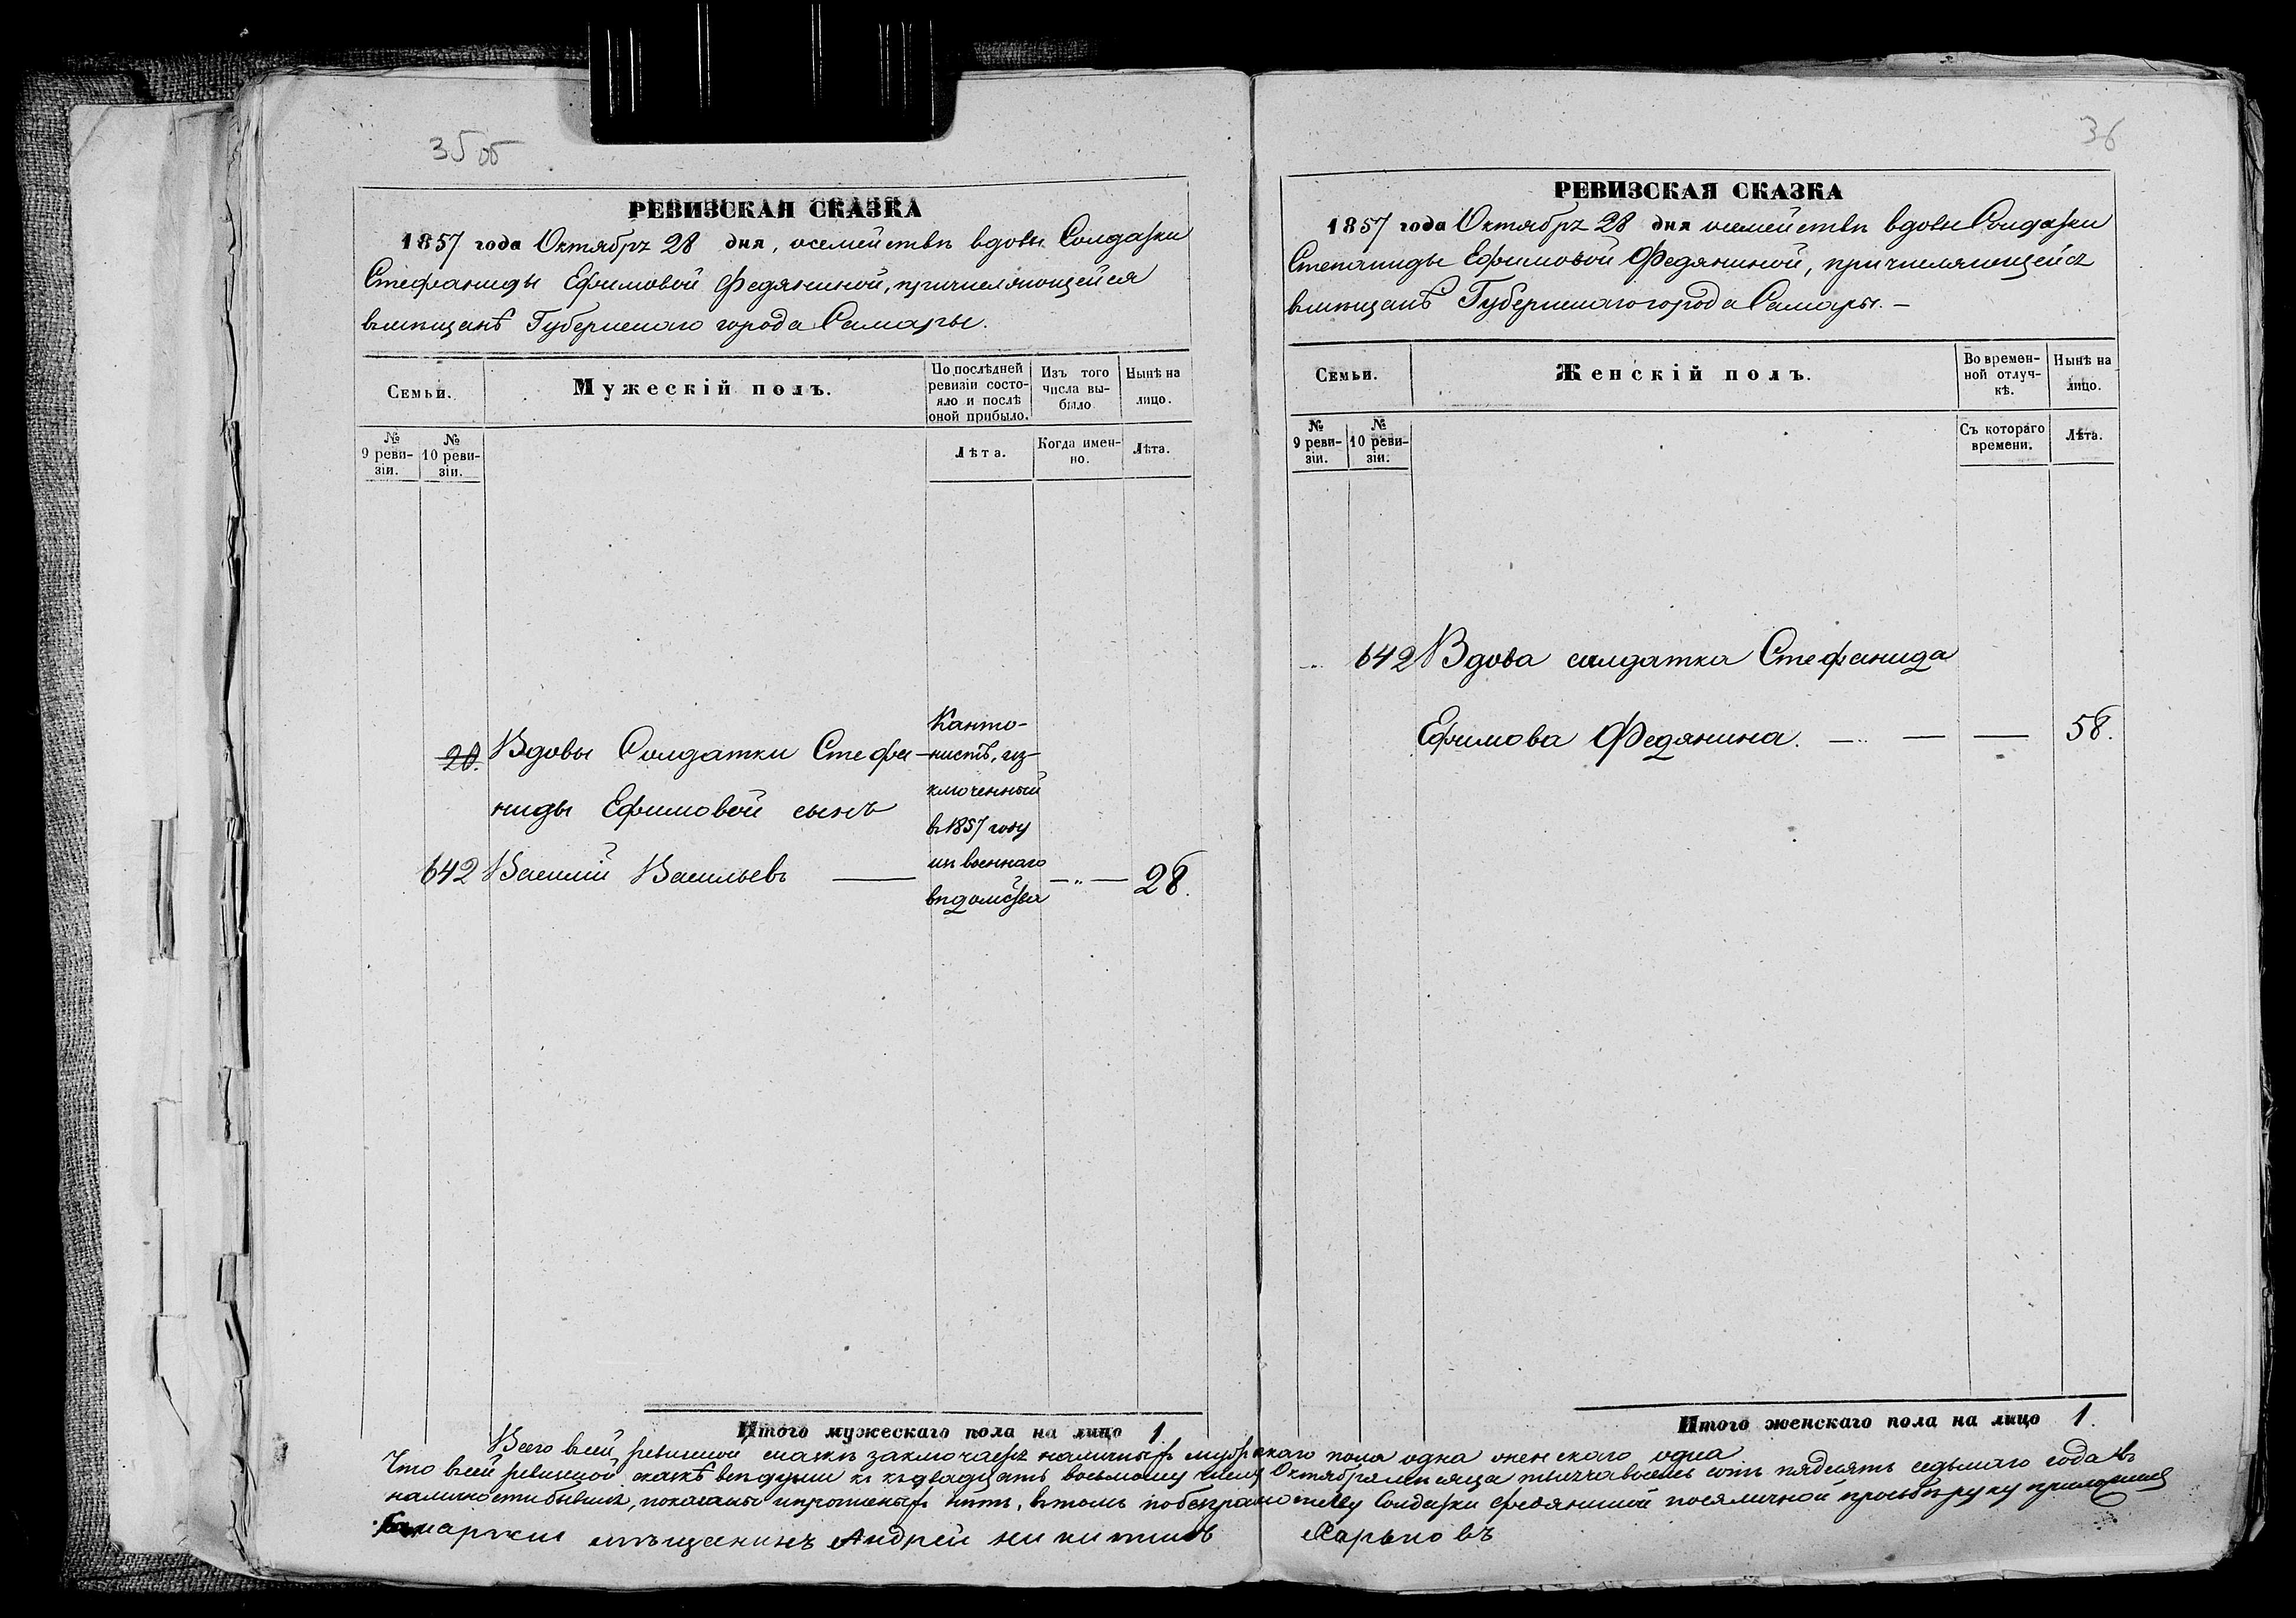 35 об
РЕВИЗСКАЯ СКАЗКА
1857 года Октября 28 дня, о семействѣ вдовы Солдатки
Стефаниды Ефимовой Федяниной, причисляющейся
в мѣщанѣ Губернскаго города Самары.
Семьи.
Мужескій полъ.
По послѣдней
ревизіи состо-
яло и послѣ
оной прибыло.
Изъ того
числа вы-
было
Нынѣ на
лицо.
№
9 реви-
зіи.
№
10 реви-
зіи.
Лѣта.
Когда имен-
но.
Лѣта.
20. Вдовы Солдатки Стефа-
ниды Ефимовой сынъ
642 Василій Васильевъ
Канто-
нистъ, из-
ключенный
в 1857 году
из военнаго
вѣдомства
28.
Итого мужескаго пола на лицо 1.
36
РЕВИЗСКАЯ СКАЗКА
1857 года Октября 28 дня о семействѣ вдовы Солдатки
Степаниды Ефимовой Федяниной, причисляющейся
в мѣщанѣ Губернскаго города Самары. –
Семьи.
Женскій полъ.
Во времен-
ной отлуч-
кѣ.
Нынѣ на
лицо.
№
9 реви-
зіи.
№
10 реви-
зіи.
Съ котораго
времени.
Лѣта.
642 Вдова солдатка Стефанида
Ефимова Федянина. 58.
Итого женскаго пола на лицо 1.
Всего в сей ревизской сказкѣ заключается наличныхъ мужскаго пола одна женскаго одна
Что в сей ревизской сказкѣ всѣ души къ двадцать восьмому числу Октября мѣсяца тысяча восемь сотъ пядесятъ седьмаго года въ
наличности бывшія, показаны и прописныхъ нѣтъ, в томъ по безграмотству Солдатки Федяниной по ея личной прозьбѣ руку приложилъ
Самарски мъщанинъ Андрей никитинъ Карповъ